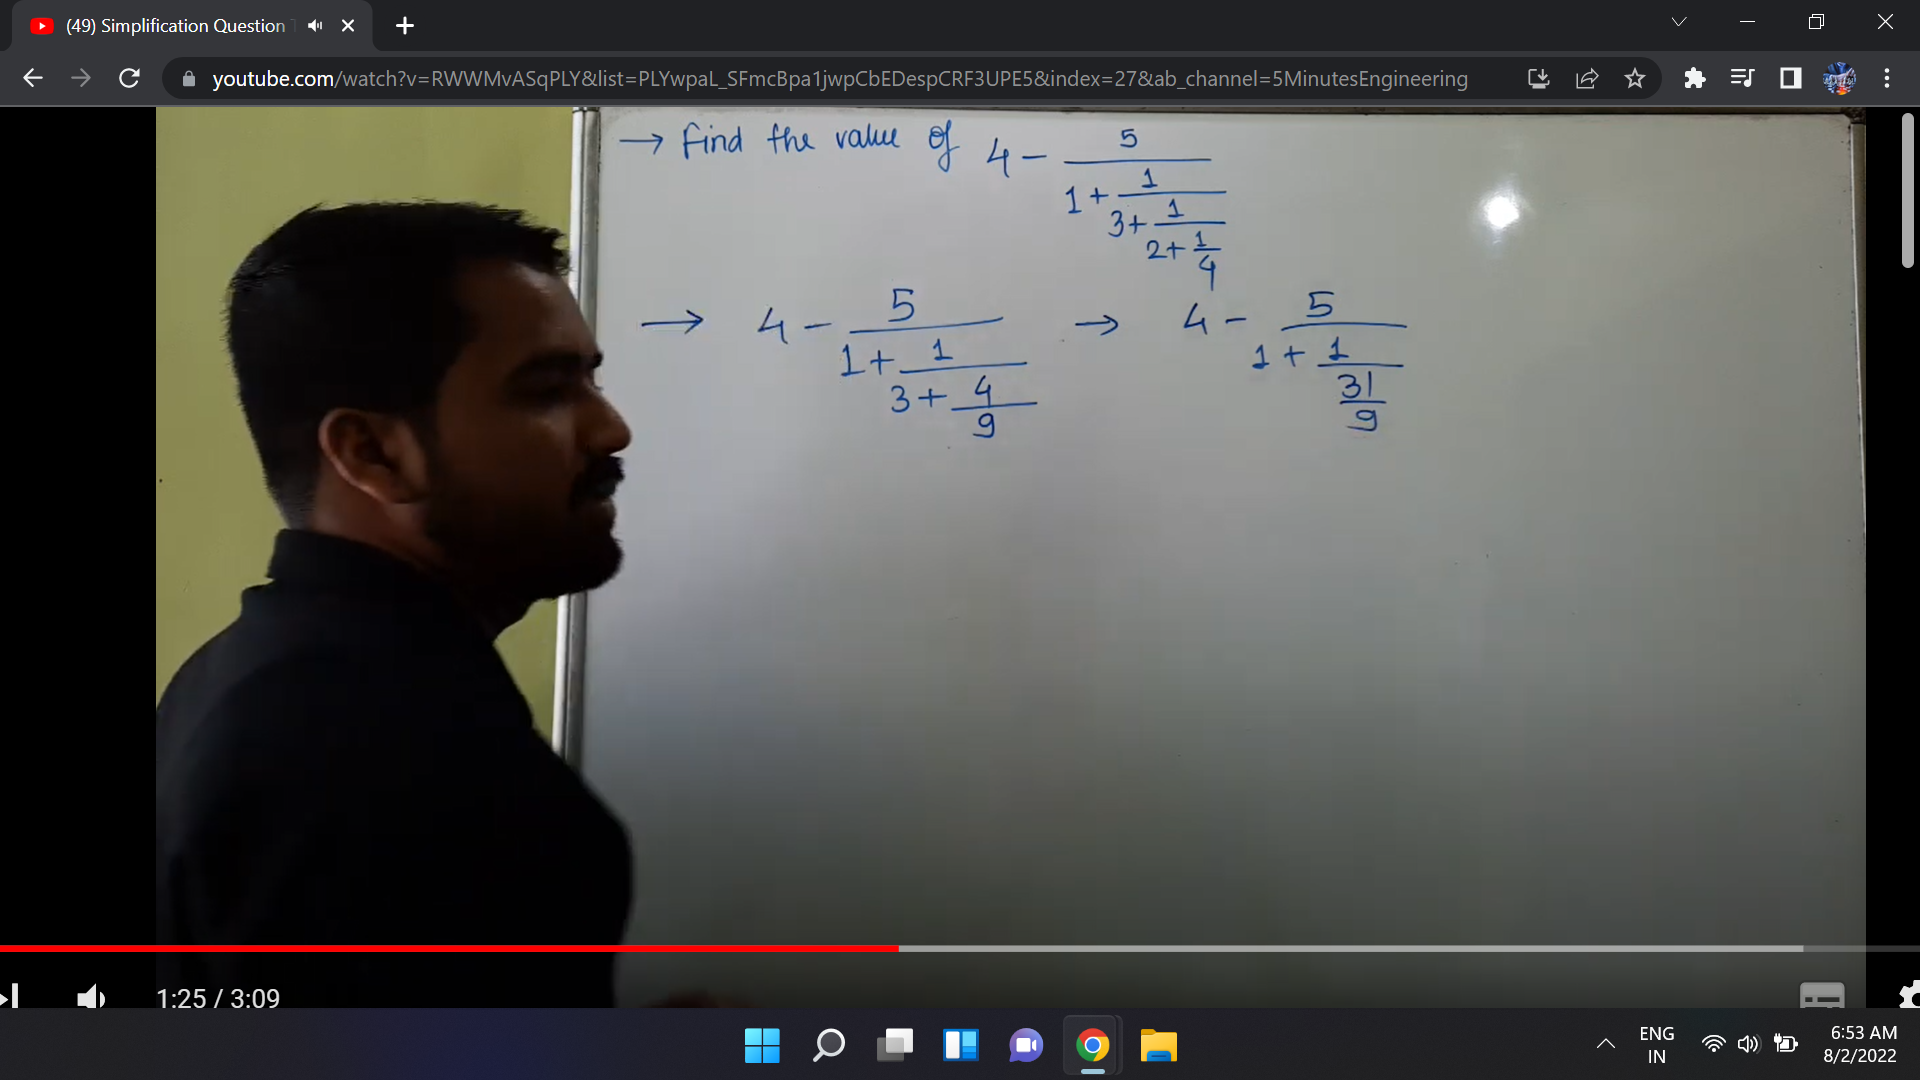 (49) Simplification Question
youtube.com/watch?v=RWWMvASqPLY&list=PLYwpaL_SFmcBpa1jwpCbEDespCRF3UPE5&index=27&ab_channel=5MinutesEngineering
→ Find the value of 4 - 5
1 + 1
3 + 1
2 + 1
4
→ 4 - 5 → 4 - 5
1 + 1 1 + 1
3 + 4 31
9 9
1:25 / 3:09
ENG 6:53 AM
IN 8/2/2022